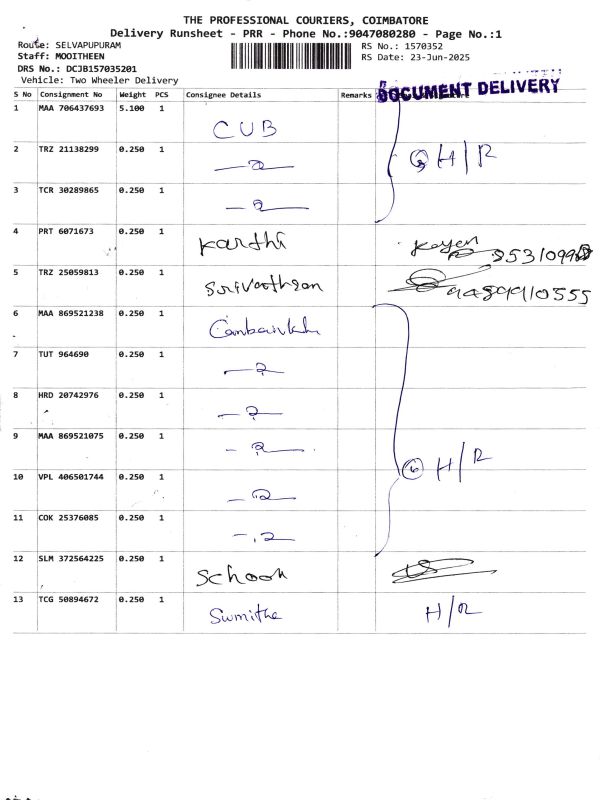 THE PROFESSIONAL COURIERS, COIMBATORE
Delivery Runsheet - PRR - Phone No.:9047080280 - Page No.:1
Route: SELVAPUPURAM
RS No.: 1570352
Staff: MOOITHEEN
RS Date: 23-Jun-2025
DRS No.: DCJB157035201
Vehicle: Two Wheeler Delivery
DOCUMENT DELIVERY
S No Consignment No Weight PCS Consignee Details Remarks
1 MAA 706437693 5.100 1 CUB
2 TRZ 21138299 0.250 1 H/R
3 TCR 30289865 0.250 1
4 PRT 6071673 0.250 1 Karthi
5 TRZ 25059813 0.250 1 Srivathsan 9489910555
6 MAA 869521238 0.250 1
7 TUT 964690 0.250 1
8 HRD 20742976 0.250 1
9 MAA 869521075 0.250 1 6 H/R
10 VPL 406501744 0.250 1
11 COK 25376085 0.250 1
12 SLM 372564225 0.250 1 School
13 TCG 50894672 0.250 1 Sumithe H/R